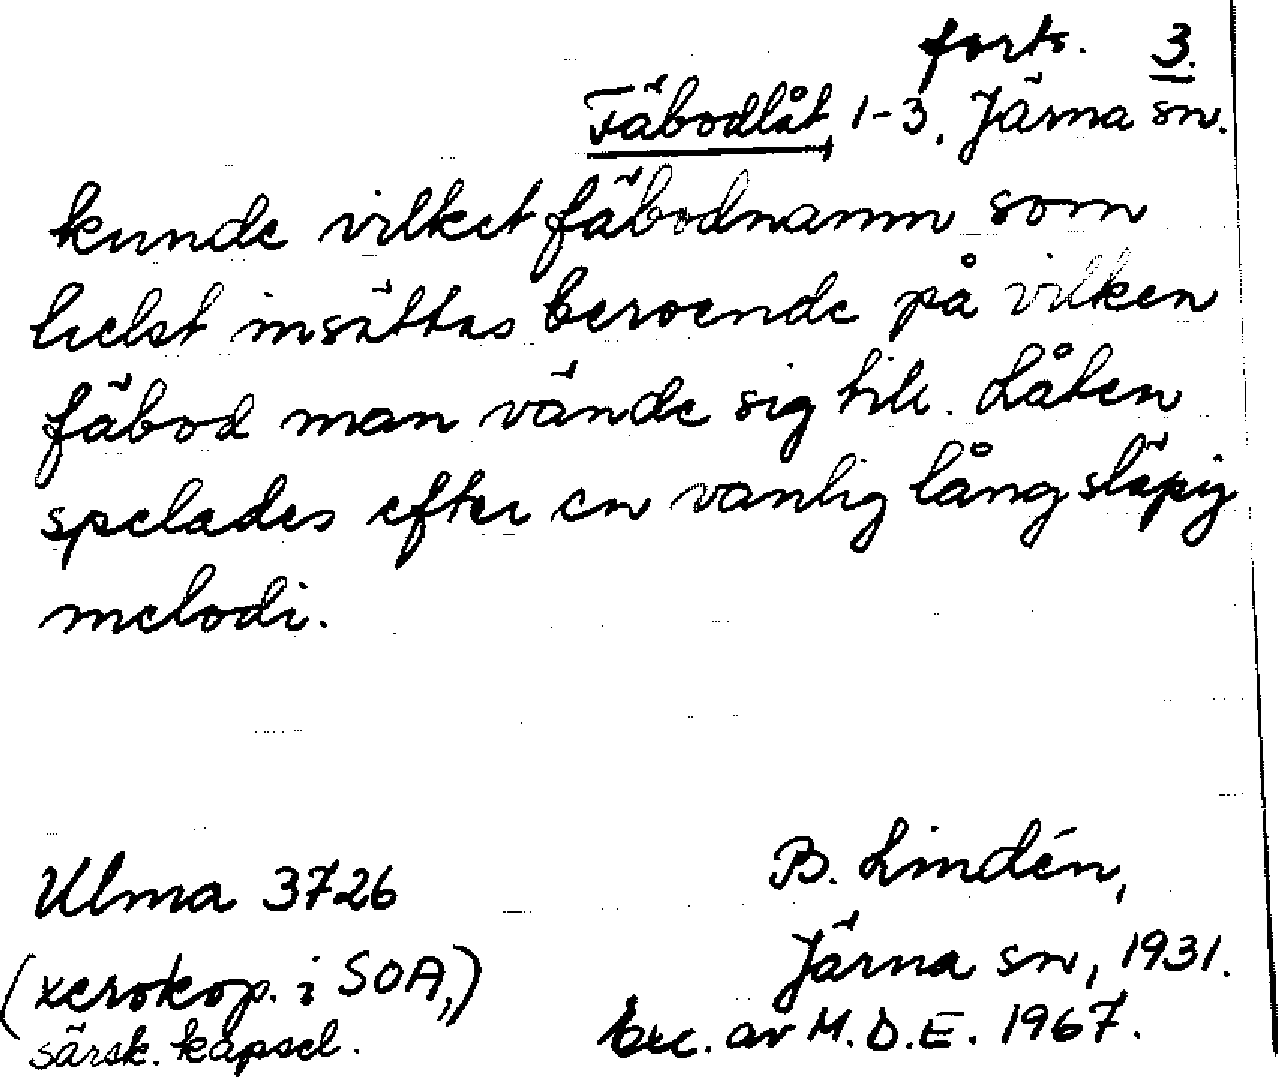 forts. 3.
Fäbodlåt, 1-3, Järna sn.
kunde vilket fäbodnamn som
helst insättas beroende på vilken
fäbod man vände sig till. Låten
spelades efter en vanlig långsläpig
melodi.
Ulma 3726
(xerokop. i SOA,)
särsk. kapsel.
B. Lindén,
Järna sn, 1931.
exc. av M.D.E. 1967.